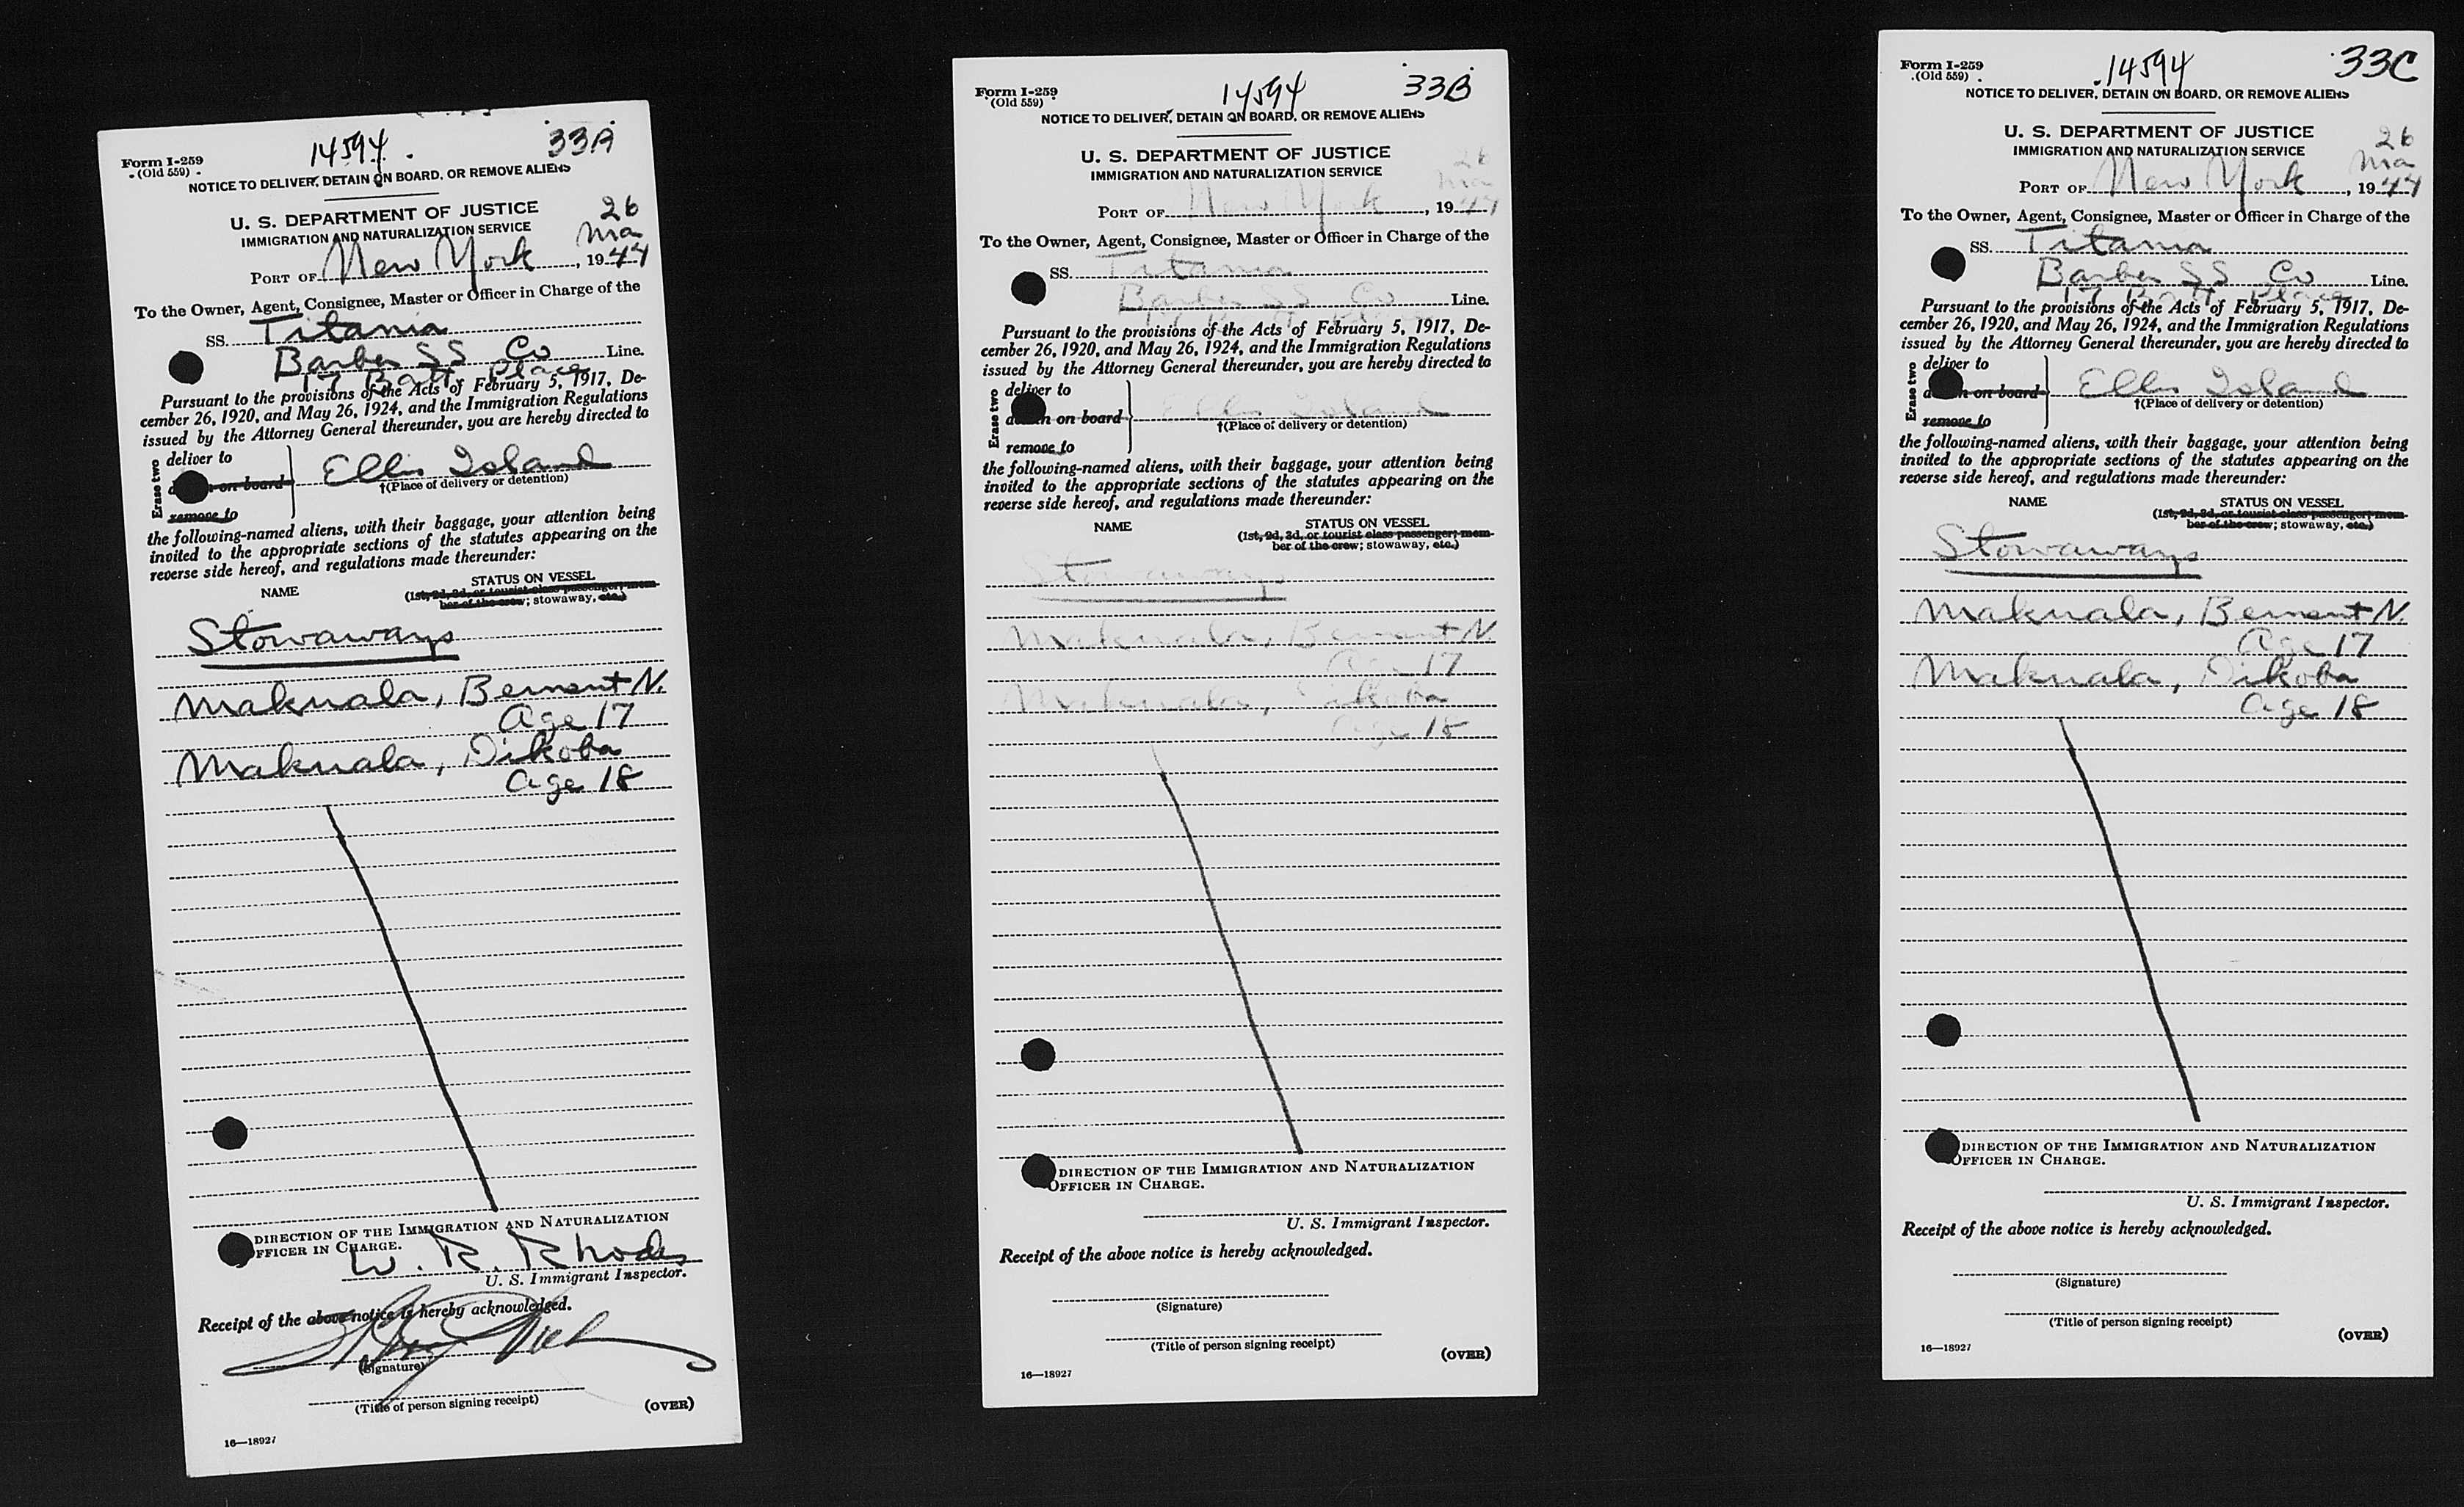 14594 33A
Form I-259
(Old 559)
NOTICE TO DELIVER, DETAIN ON BOARD, OR REMOVE ALIENS
U. S. DEPARTMENT OF JUSTICE
IMMIGRATION AND NATURALIZATION SERVICE
26
Ma
PORT OF New York, 1944
To the Owner, Agent, Consignee, Master or Officer in Charge of the
SS. Titania
Barber SS Co Line.
17 Batt Place
Pursuant to the provisions of the Acts of February 5, 1917, De-
cember 26, 1920, and May 26, 1924, and the Immigration Regulations
issued by the Attorney General thereunder, you are hereby directed to
Erase two
deliver to
on board
Ellis Island
remove to
†(Place of delivery or detention)
the following-named aliens, with their baggage, your attention being
invited to the appropriate sections of the statutes appearing on the
reverse side hereof, and regulations made thereunder:
NAME STATUS ON VESSEL
(1st, 2d, 3d, or tourist class passenger; mem-
ber of the crew; stowaway, etc.)
Stowaways
Maknala, Bement N.
Age 17
Maknala, Dikoba
Age 18
DIRECTION OF THE IMMIGRATION AND NATURALIZATION
FFICER IN CHARGE.
W. R. Rhodes
U. S. Immigrant Inspector.
Receipt of the above notice is hereby acknowledged.
(Signature)
(Title of person signing receipt)
(OVER)
16—18927
14594 33B
Form I-259
(Old 559)
NOTICE TO DELIVER, DETAIN ON BOARD, OR REMOVE ALIENS
U. S. DEPARTMENT OF JUSTICE
IMMIGRATION AND NATURALIZATION SERVICE
26
Ma
PORT OF New York, 1944
To the Owner, Agent, Consignee, Master or Officer in Charge of the
SS. Titania
Barber SS Co Line.
Pursuant to the provisions of the Acts of February 5, 1917, De-
cember 26, 1920, and May 26, 1924, and the Immigration Regulations
issued by the Attorney General thereunder, you are hereby directed to
Erase two
deliver to
on board
Ellis Island
†(Place of delivery or detention)
remove to
the following-named aliens, with their baggage, your attention being
invited to the appropriate sections of the statutes appearing on the
reverse side hereof, and regulations made thereunder:
NAME STATUS ON VESSEL
(1st, 2d, 3d, or tourist class passenger; mem-
ber of the crew; stowaway, etc.)
Stowaways
Maknala, Bement N
Age 17
Maknala, Dikoba
Age 18
DIRECTION OF THE IMMIGRATION AND NATURALIZATION
OFFICER IN CHARGE.
U. S. Immigrant Inspector.
Receipt of the above notice is hereby acknowledged.
(Signature)
(Title of person signing receipt)
(OVER)
16—18927
14594 33C
Form I-259
(Old 559)
NOTICE TO DELIVER, DETAIN ON BOARD, OR REMOVE ALIENS
U. S. DEPARTMENT OF JUSTICE
IMMIGRATION AND NATURALIZATION SERVICE
26
Ma
PORT OF New York, 1944
To the Owner, Agent, Consignee, Master or Officer in Charge of the
SS. Titania
Barber SS Co Line.
17 Batt Place
Pursuant to the provisions of the Acts of February 5, 1917, De-
cember 26, 1920, and May 26, 1924, and the Immigration Regulations
issued by the Attorney General thereunder, you are hereby directed to
Erase two
deliver to
on board
Ellis Island
†(Place of delivery or detention)
remove to
the following-named aliens, with their baggage, your attention being
invited to the appropriate sections of the statutes appearing on the
reverse side hereof, and regulations made thereunder:
NAME STATUS ON VESSEL
(1st, 2d, 3d, or tourist class passenger; mem-
ber of the crew; stowaway, etc.)
Stowaways
Maknala, Bement N.
Age 17
Maknala, Dikoba
Age 18
DIRECTION OF THE IMMIGRATION AND NATURALIZATION
OFFICER IN CHARGE.
U. S. Immigrant Inspector.
Receipt of the above notice is hereby acknowledged.
(Signature)
(Title of person signing receipt)
(OVER)
16—18927